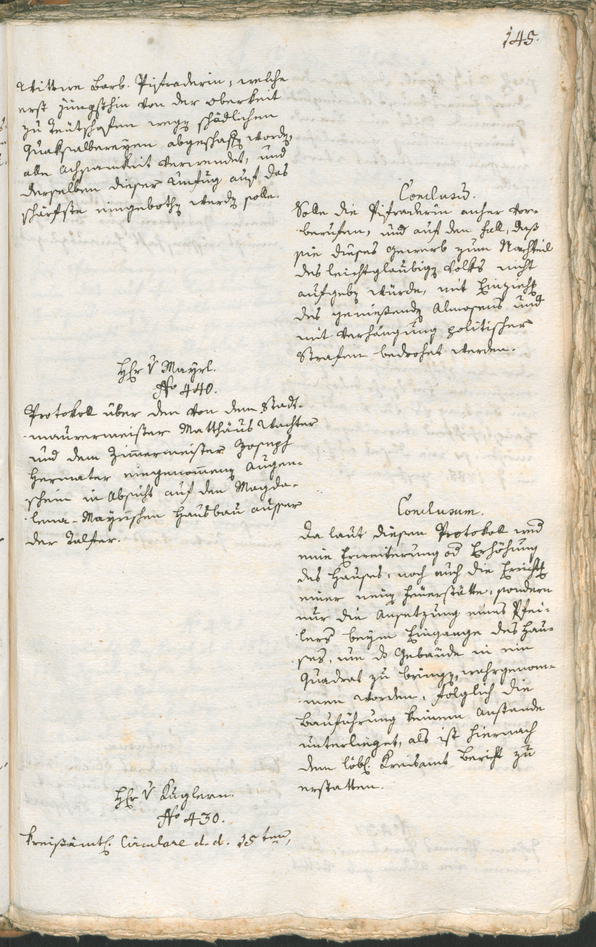 145.
Wittwe Barb. Pifraderin, welche
erst jüngsthin von der Oberkeit
zu Teütschofen wegen schädlichen
Quaksalbereyen abgeschaft worden,
alle Achtsamkeit verwendet, und
derselben dieser Unfug auf das
schärfste eingebothen werden solle.
Conclusum.
Solle die Pifraderin anher vor-
berufen, und auf den Fall, daß
sie dieses Gewerb zum Nachtheil
des leichtglaubigen Volks nicht
aufgeben würde, mit Einziehung
des genießenden Almosens und
mit Verhängung politischer
Strafen bedrohet werden.
H. v. Mayrl.
No 440.
Protokoll über den von dem Stadt-
maurermeister Matthäus Wachter
und dem Zimmermeister Joseph
eingenommenen Augen-
schein in Absicht auf den Magda-
lena-Mayrischen Hausbau ausser
der Talfer.
Conclusum.
Da laut diesen Protokoll wed
eine Erweiterung od Erhöhung
des Hauses, noch auch die Errichtung
einer neuen Feuerstätte, sondern
nur die Ansetzung eines Pfei-
lers beym Eingange des Hau-
ses, um d Gebäude in ein
Quadrat zu bringen, wahrgenom-
men worden, folglich die
Bauführung keinem Anstande
unterlieget, als ist hiernach
dem löbl. Kreisamt Bericht zu
erstatten.
H. v. Kuglern.
No 430.
Kreisämtl. Circulare d. d. 15ten,